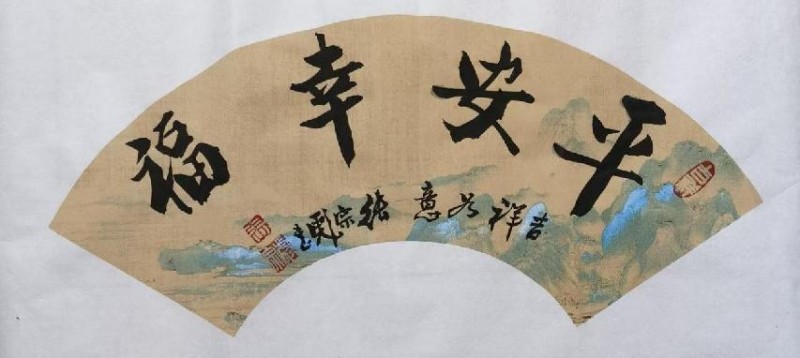 平安幸福
吉祥如意 张宗彪书